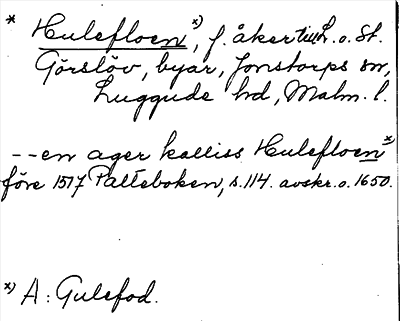 * Hulefloen x), f. åker till L. o. St.
Görslöv, byar, Jonstorps sn,
Luggude hd, Malm. l.
-- en ager kalliss Hulefloen x)
före 1517 Palteboken, s. 114. avskr. o. 1650.
x) A: Gulefod.